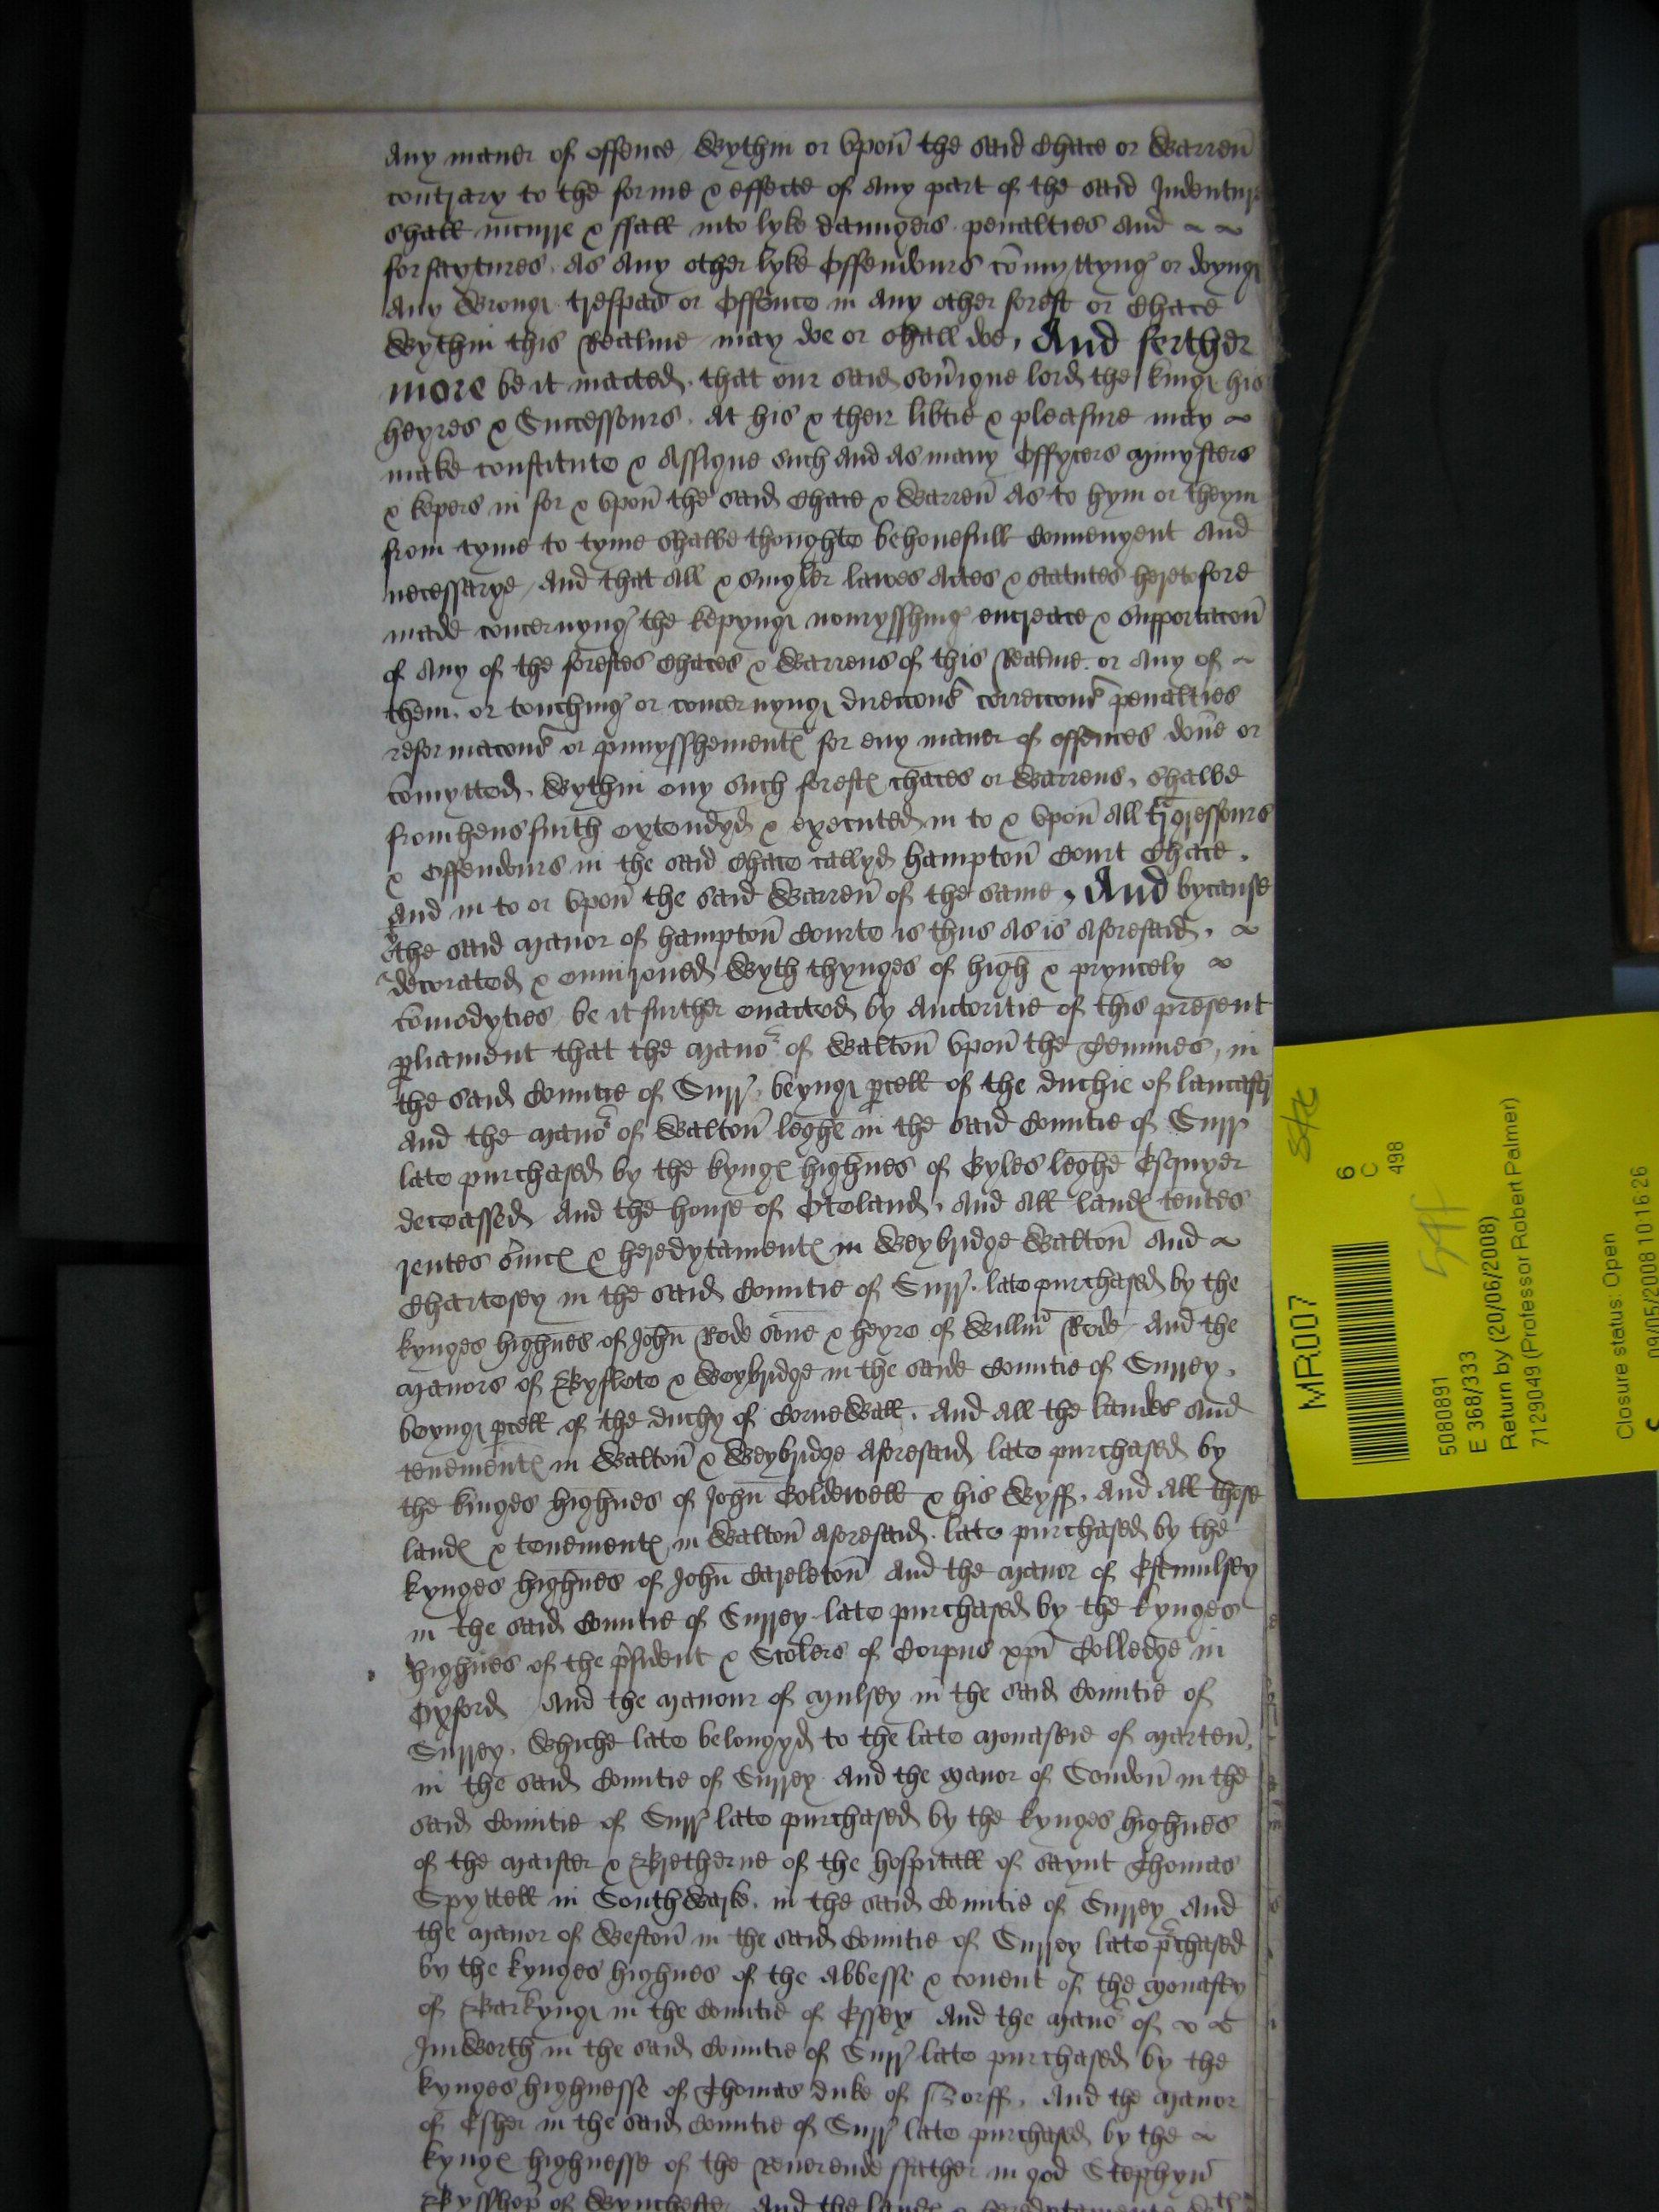 any maner of offence wythin or vpon the said Chace or Warren
contrary to the forme & effecte of any part of the said Indenture
shall incurre & ffall into lyke daungers penalties and
forfaytures as any other lyke Offendours comyttyng or doyng
any wrong trespas or Offence in any other forest or Chace
Wythin this Realme may doe or shall doe, And ferther
more be it inacted that our said souigne lord the king his
heyres & Successours at his & their libtie & pleasure may
make constitute & assigne such and as many Offycers mynysters
& kepers in for & vpon the said Chace & Warren as to hym or theym
from tyme to tyme shalbe thoughte behouefull Conuenyent and
necessarye And that all & singler lawes actes & statutes heretofore
made concernyng the kepyng norysshing encreace & supportacon
of any of the forestes Chaces & Warrens of this Realme or any of
them or touching or concernyng direccons correccons penalties
reformacons or punysshementes for eny maner of offences done or
comytted wythin eny such forestes chaces or Warrens, shalbe
fromhensfurth extendyd & executed in to & vpon all tnsgressours
& Offendours in the said Chace callyd hampton Court Chace,
and in to or vpon the said Warren of the same, And bycause
the said manor of hampton Courte is thus as is aforesaid,
decorated & enuironed wyth thynges of high & pryncely
comodyties be it further enacted by auctoritie of this present
pliament that the mano of Walton vpon the Temmes, in
the said Countie of Surr, beyng pcell of the duchie of lancastr
And the mano of Walton leghe in the said Countie of Surr
late purchased by the kynges highnes of Gyles leghe Esquyer
deceassed And the house of Oteland, And all landes tentes
rentes suices & heredytamentes in Weybridge Walton and
Chartesey in the said Countie of Surr late purchased by the
kynges highnes of John Rede sone & heyre of Willm Rede And the
manors of Byflete & Weybridge in the saide Countie of Surrey,
beyng pcell of the duchy of Cornewall, And all the landes and
tenementes in Walton & Weybridge aforesaid late purchased by
the kinges highnes of John Goldewell & his Wyff, And all those
landes & tenementes in Walton aforesaid late purchased by the
kynges highnes of John Carleton And the manor of Estmulsey
in the said Countie of Surrey late purchased by the kynges
highnes of the psident & Scolers of Corpus xpi Colledge in
Oxford And the manour of mulsey in the said Countie of
Surrey, whiche late belongyd to the late monasterie of marten,
in the said Countie of Surrey And the manor of Sondon in the
said Countie of Surr late purchased by the kynges highnes
of the maister & Bretherne of the hospitall of saynt Thomas
Spyttell in Southwarke, in the said Countie of Surrey And
the manor of Weston in the said Countie of Surrey late pchased
by the kynges highnes of the abbesse & couent of the monastey
of Barkyng in the Countie of Essex And the mano of
Imworth in the said Countie of Surr late purchased by the
kynges highnesse of Thomas duke of Norff, And the manor
of Esher in the said Countie of Surr late purchased by the
kynges highnesse of the reuerende ffather in god Stephyn
Bysshop of Wynchester And the landes & heredytamentes
MR007
6
C
498
5080891
E 368/333
Return by (20/06/2008)
7129049 (Professor Robert Palmer)
Closure status: Open
09/05/2008 10:16:26